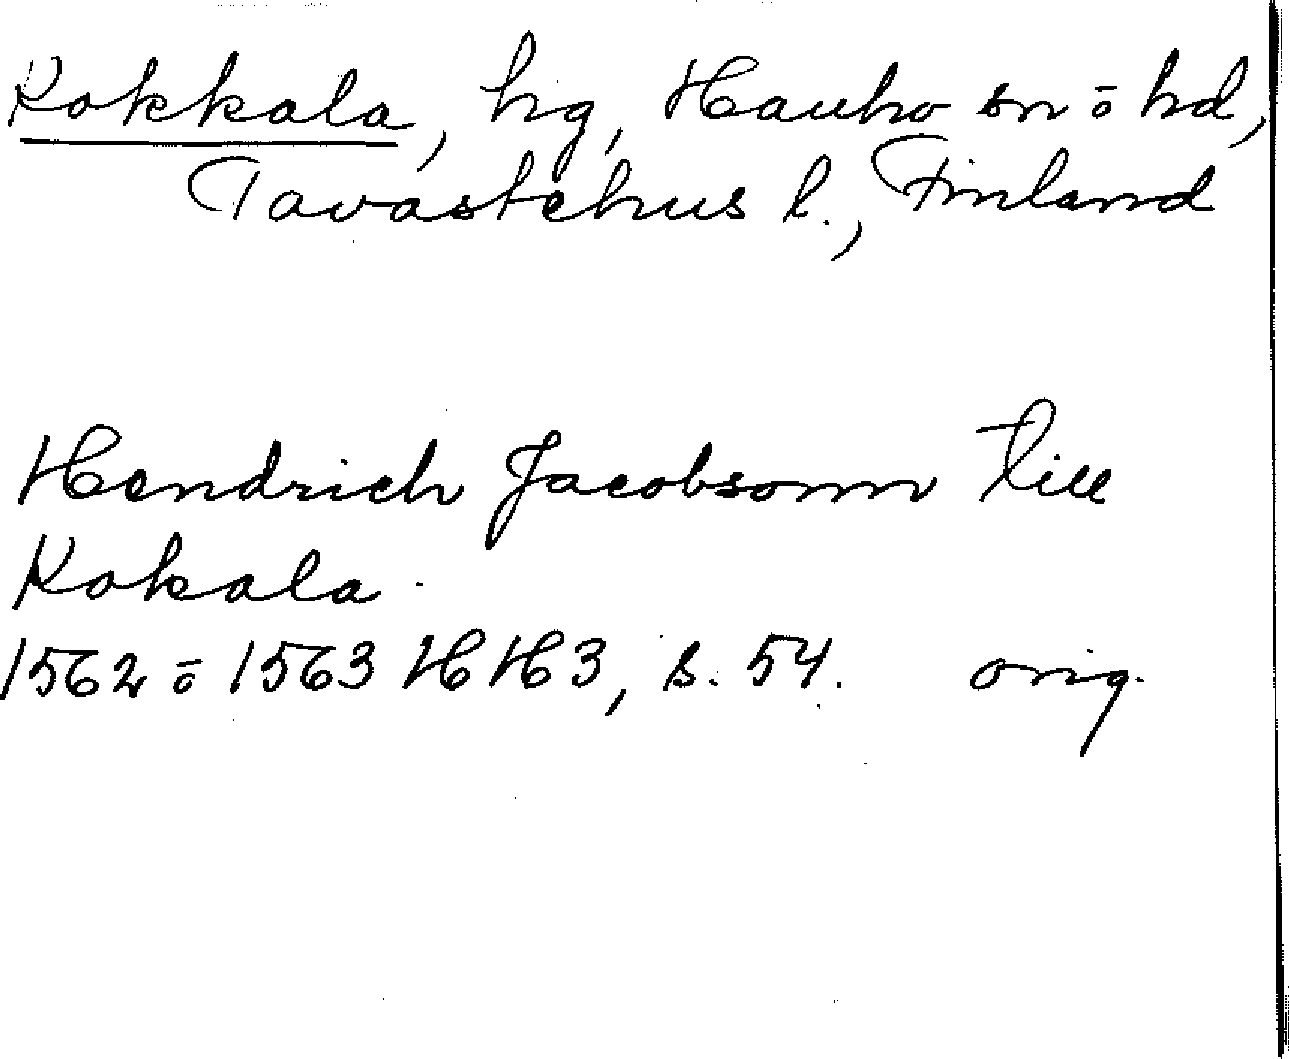 Kokkala, hg, Hauho sn o hd,
Tavastehus l., Finland
Hendrich Jacobsonn till
Kokala.
1562 o 1563 HH3, s. 54. orig.